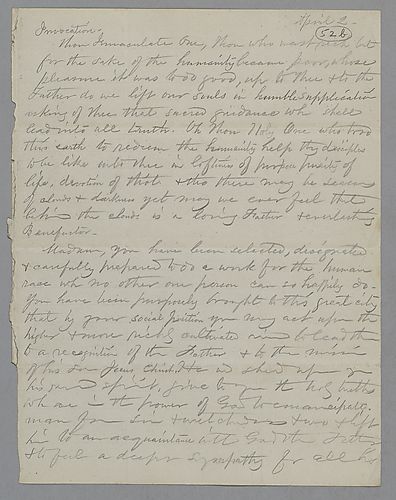 April 2
52b
Invocation
Thou Immaculate One, Thou who wast rich but
for the sake of the humanity became poor, whose
pleasure it was to do good, up to Thee & to the
Father do we lift our souls in humble supplication
asking of Thee that sacred guidance wh shall
lead into all truth. Oh Thou Holy One who trod
this earth to redeem the humanity help thy disciples
to be like unto thee in loftiness of purpose purity of
life, devotion of thot & tho there may be seasons
of clouds & darkness yet may we ever feel that
behind the clouds is a loving Father & everlasting
Benefactor-
Madam, you have been selected, designated
& carefully prepared to do a work for the human
race wh no other one person can so happily do.
You have been purposely brought to this great city
that by your social position you may act upon the
higher & more richly cultivated to lead them
to a recognition of the Father & to the mission
of his son Jesus Christ. He will shed upon you
his spirit, give to you the holy truths
wh are in the power of God to emancipate
man from sin & wretchedness & lift
him to an acquaintance with God the Father
& to feel a deeper sympathy for all his